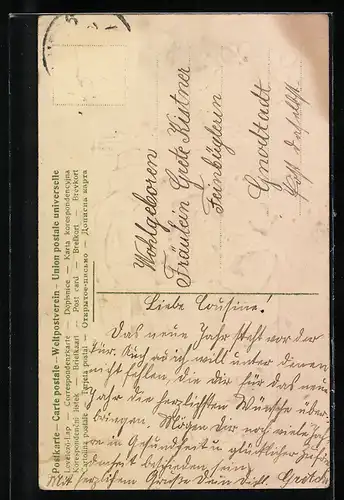 Postkarte — Carte postale — Weltpostverein — Union postale universelle
Levelezö-Lap — Correspondenzkarte — Dopisnice — Karta korespondencyjna
Korespondenční lístek — Briefkaart — Post card — Brefkort — Brevkort
Cartolina postale — Tarjeta postal — Открытое письмо — Дописна карта
Wohlgeboren
Fräulein Grete Kistner
Feinbüglerin
Gnodstadt
Post daselbst.
Liebe Cousine!
Das neue Jahr steht vor der
Tür. Auch ich will unter denen
nicht fehlen, die dir für das neue
Jahr die herzlichsten Wünsche über-
bringen. Mögen Dir noch viele Jah-
re in Gesundheit u. glücklicher
beschieden sein.
Mit herzlichem Gruße Dein